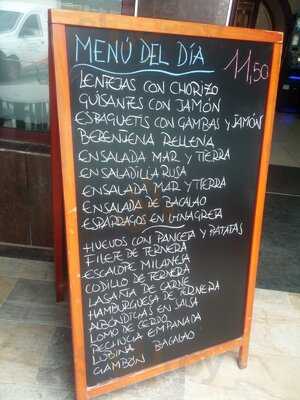 MENÚ DEL DÍA
11,50
LENTEJAS CON CHORIZO
GUISANTES CON JAMÓN
ESPAGUETIS CON GAMBAS Y JAMÓN
BERENJENA RELLENA
ENSALADA MAR Y TIERRA
ENSALADILLA RUSA
ENSALADA MAR Y TIERRA
ENSALADA DE BACALAO
ESPÁRRAGOS EN VINAGRETA
HUEVOS CON PANCETA Y PATATAS
FILETE DE TERNERA
ESCALOPE MILANESA
CODILLO DE TERNERA
LASAÑA DE CARNE
HAMBURGUESA DE TERNERA
ALBÓNDIGAS EN SALSA
LOMO DE CERDO
PECHUGA EMPANADA
LUBINA BACALAO
GAMBÓN